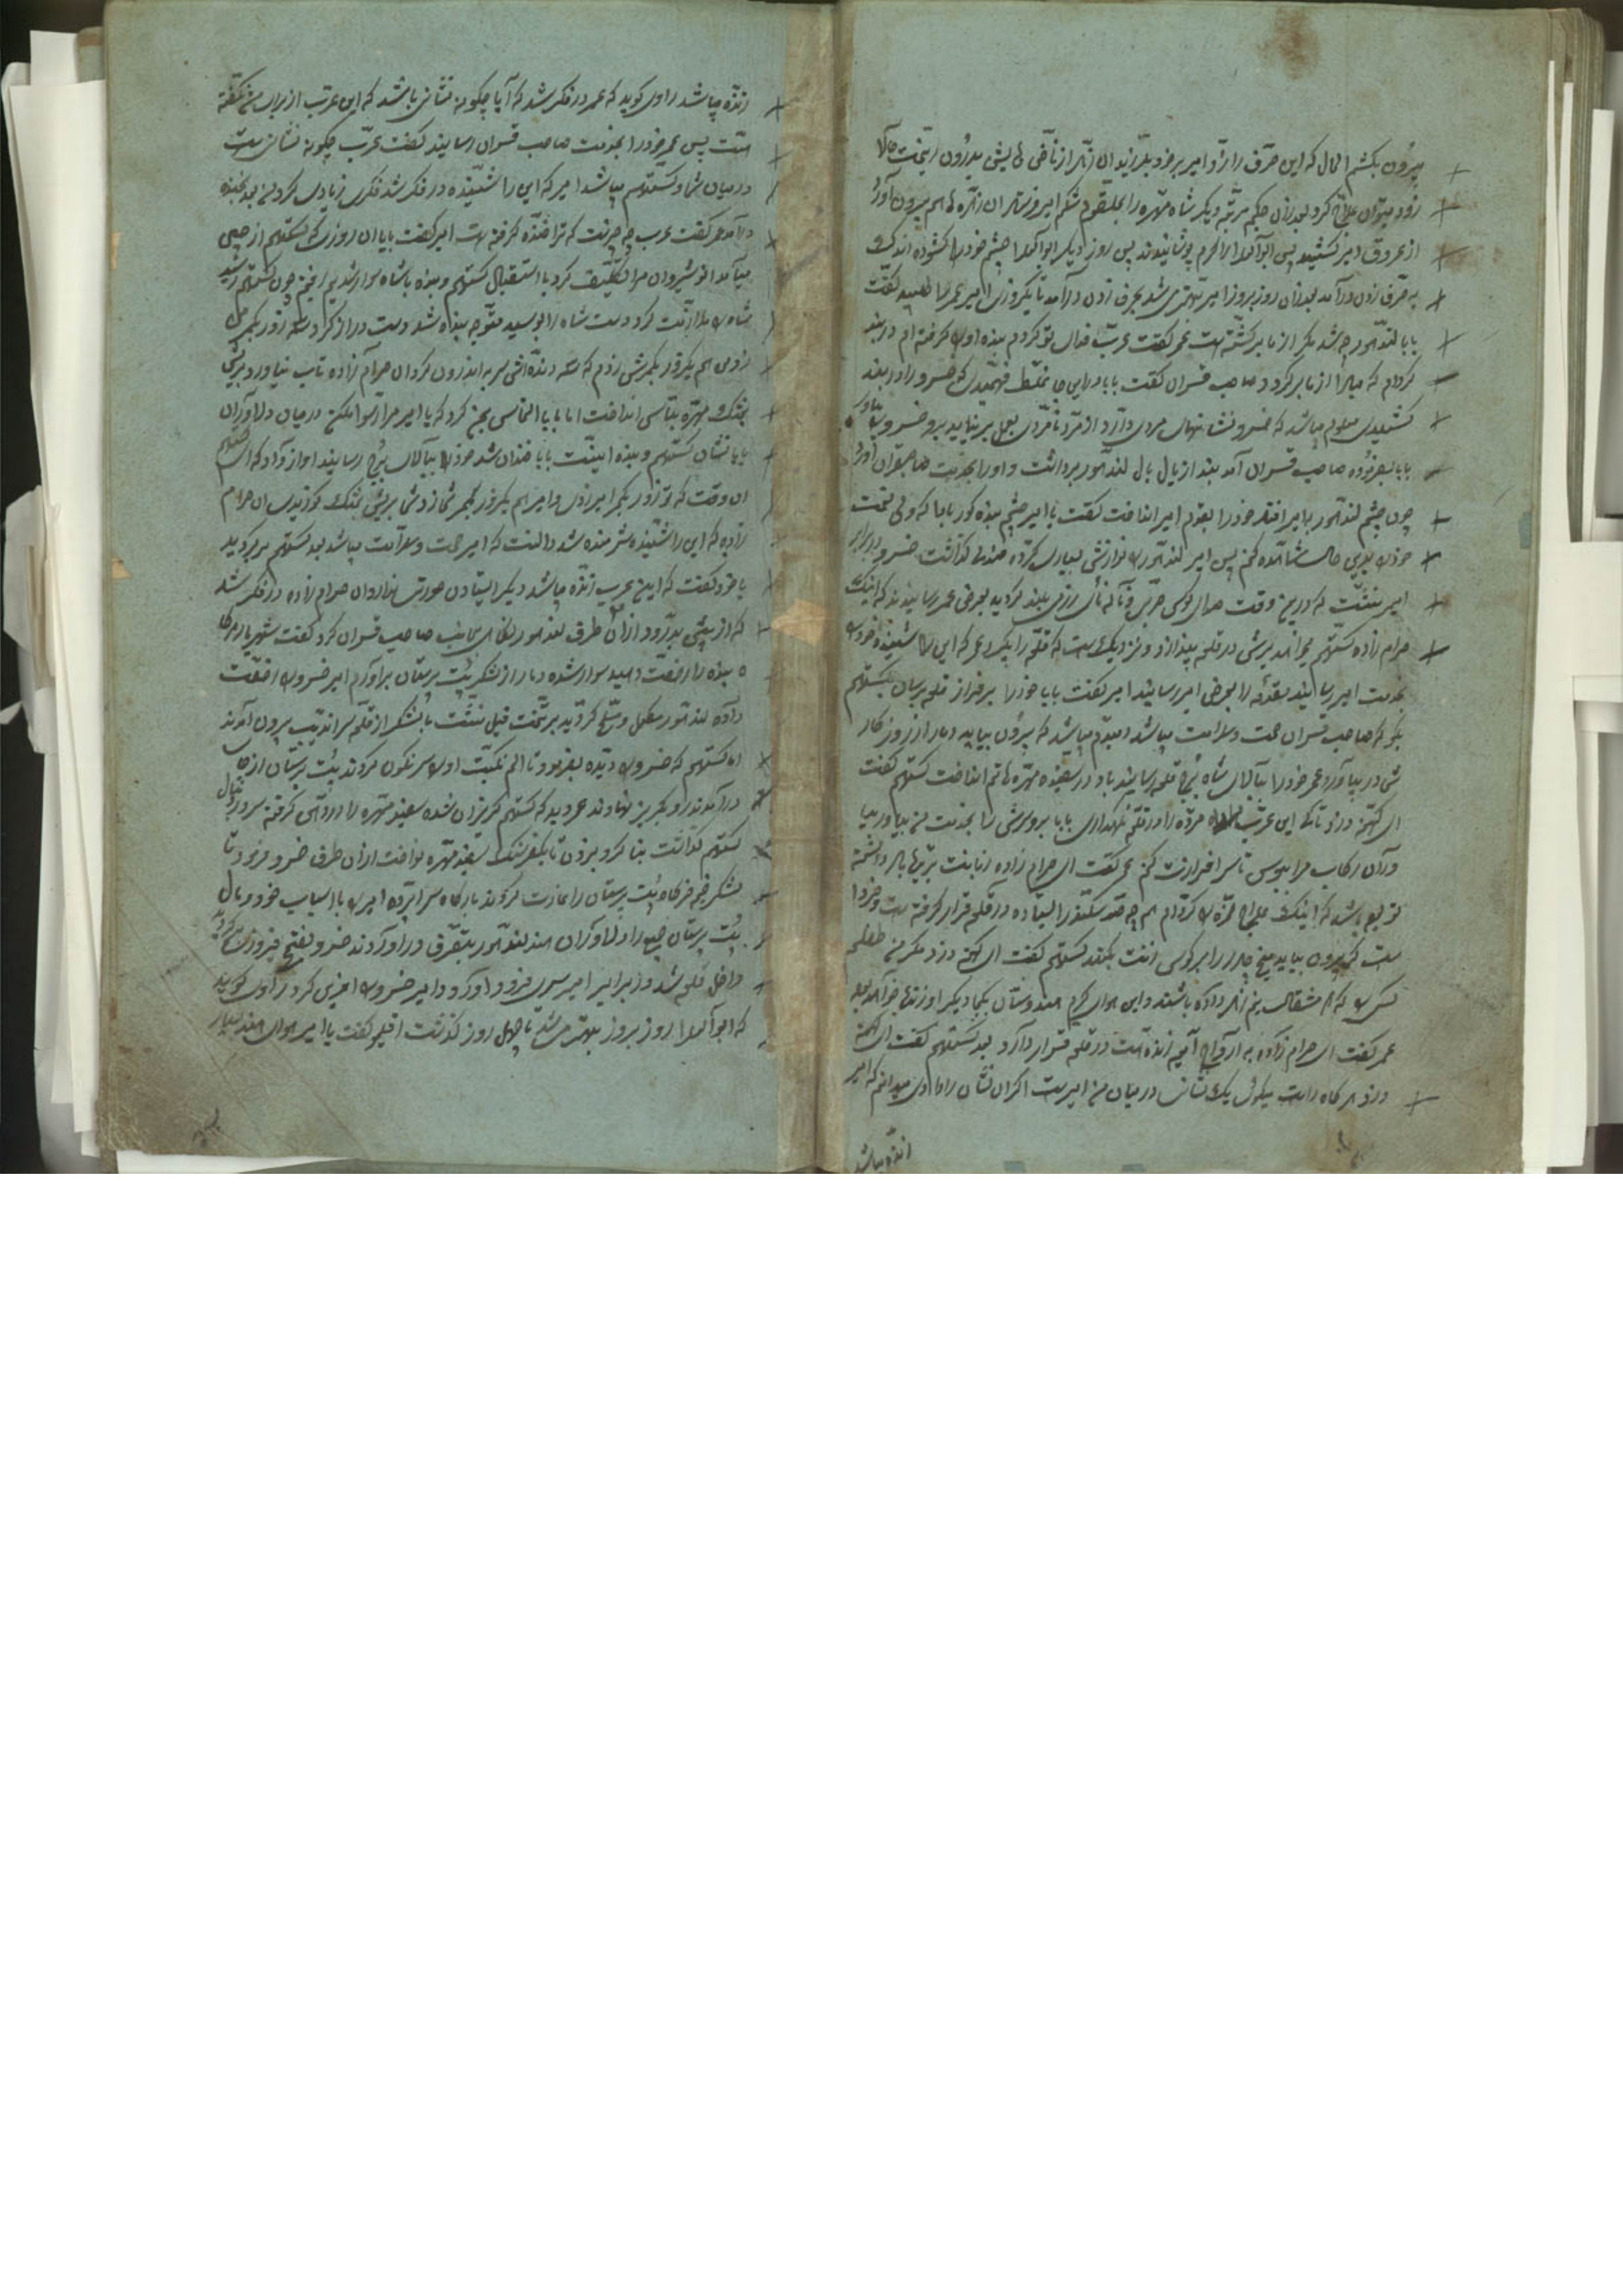 بیرون بکشم الحال که این حرف را زد امیر برخود بلرزید و آن زهر از ناخن هایش بیرون ریخت حالا
زود میتوان علاج کرد بعد ازان حکیم مرتبه دیگر شاه مهره را بحلقوم شکم امیر زهر ان زهره هم بیرون آورد
از عروق امیر کشید پس ابوالعلا را کرم پوشانیدند پس روز دیگر ابوالعلا چشم خود را کشوده اندک
به حرف زدن درآمد بعد ازان روز بروز امیر بهتر می شد بحرف زدن درآمد تا یکروزی امیر عمر را طلبید گفت
بابا لندهور چه شد مگر از ما برگشته است عمر گفت عرب فدای تو کردم بنده او را گرفته ام در بند
کردم که میرا از ما بر کرد صاحب قران گفت بابا درین جا غلط فهمیدی که خسرو را در بند
کشیدی معلوم میباشد که خسرو نشانهای مردی دارد از مرد نامردی بعمل بر نیاید برو خسرو بیاور
بابا بفرموده صاحب قران آمد بند از یال بال لندهور برداشت و او را بخدمت صاحبقران آورد
چون چشم لندهور به امیر افتاد خود را بقدم امیر انداخت گفت یا امیر چشم بنده کور بادا که ولی نعمت
خود را بدین حال مشاهده کنم پس امیر لندهور را نوازش بسیاری کرد صندلی گذاشت خسرو برابر
امیر نشست که درین وقت صدای کوس حربی و ناله نای رزمی بلند گردید بعرض عمر رسانیدند که اینک
حرام زاده کستهم میخواهد یرش در قلعه بیندازد و نزدیک است که قلعه را بگیرد عمر که این را شنید خود را
بخدمت امیر رسانید مقدمه را بعرض امیر رسانید امیر گفت بابا خود را برفراز قلعه برسان بکستهم
بگو که صاحب قران صحت و سلامت میباشد میباشد که بیرون بیاید دمار از روزگار
شما در بیاورد عمر خود را ببالای شاه برج قلعه رسانید باد در سفید مهره انداخت کستهم گفت
ای کهنه دزد تا کی این عرب مرده را در قلعه نگهداری بابا بر و سرش را بخدمت من بیاور بیا
و ران رکاب مرا ببوس تا سرافرازت کنم عمر گفت ای حرام زاده زبانت بریده باد دانسته
تو بوده باشد که اینک علاج حمزه را کردم هم چه سد سکندر ایستاده در قلعه قرار گرفته است فردا
است که بیرون بیاید میخ چادر را بر کوس انت بکند کستهم گفت ای کهنه دزد مگر من طفلی
کسی را که مشقال نیم زهر داده باشند و این هوای گرم هندوستان بکجا دیگر او زنده خواهد بود
عمر گفت ای حرام زاده به ارواح آمیه زنده است در قلعه قرار دارد بعد کستهم گفت ای کهنه
دزد هرگاه راست میگوئی یک نشانی در میان من و امیر است اگر ان نشان را دادی میدانم که امیر
زنده میباشد
زنده میباشد راوی گوید که عمر در فکر شد که آیا چگونه نشانی باشد که این عرب از برای من نگفته
است پس عمر خود را بخدمت صاحب قران رسانید گفت عرب چگونه نشانی است
درمیان شما و کستهم میباشد امیر که این را شنید در فکر شد فکری زیادی کرد بعد بخنده
درآمد عمر گفت عرب چه چیز است که ترا خنده گرفته است امیر گفت بابا ان روزی که کستهم از چین
میآمد انوشیروان مرا تکلیف کرد با استقبال کستهم و بنده باشاه سوار شدیم رفتیم چون کستهم رسید
شاه را ملازمت کرد دست شاه را بوسید متوجه بنده شد دست دراز کرد سه زور بکمر من
زد من هم یکزور بکمرش زدم که سه دنده اش سر به اندرون کرد ان حرام زاده تاب نیاورد بریش
خشک و مهره تاسی انداخت اما بابا التماسی بمن کرد که یا امیر مرا رسوا مکن درمیان دلاوران
بابا نشان کستهم و بنده اینست بابا خندان شد خود را ببالای برج رسانید اواز داد که ای کستهم
ان وقت که تو زور بکمر امیر زدی و امیر هم یکزور بکمر شما زد شما بریش خشک کوزیدی ان حرام
زاده که این را شنید شرمنده شد دانست که امیر صحت و سلامت میباشد بعد کستهم برگردید
باخود گفت که این عرب زنده میباشد دیگر ایستادن صورتی ندارد ان حرام زاده در فکر شد
که از پیش بدر رود ازان طرف لندهور نگاه بجانب صاحب قران کرد گفت شهریار هرگاه
بنده را رخصت دهید سوار شده دمار از لشکر بت پرستان برآورم امیر خسرو را رخصت
داده لندهور مکمل و مسلح گردید بر تخت فیل نشست با لشکر از قلعه سراندیب بیرون آمدند
اه کستهم که خسرو را دیده بفرمود تا الم نکبت او را سرنکون کردند بت پرستان از جا
درآمدند رو بگریز نهادند عمر دید که کستهم گریزان شده سفید مهره را در دهن گرفته سر در دنبال
کستهم گذاشت بنا کرد بزدن تا یکفرسنک سفید مهره نواخت ازان طرف خسرو فرمود تا
لشکر خیمه خرگاه بت پرستان را غارت کردند بارگاه سراپرده امیر را با اسباب خود و مال
بت پرستان جمیع را دلاوران هند لندهور بتصرف درآوردند خسرو بفتح فیروزی برگردید
داخل قلعه شد و از برابر امیر سری فرود آورد و امیر خسرو را افرین کرد راوی گوید
که ابوالعلا روز بروز بهتر می شد تا چهل روز گذشت اقلیمو گفت یا امیر هوای هند بسیار